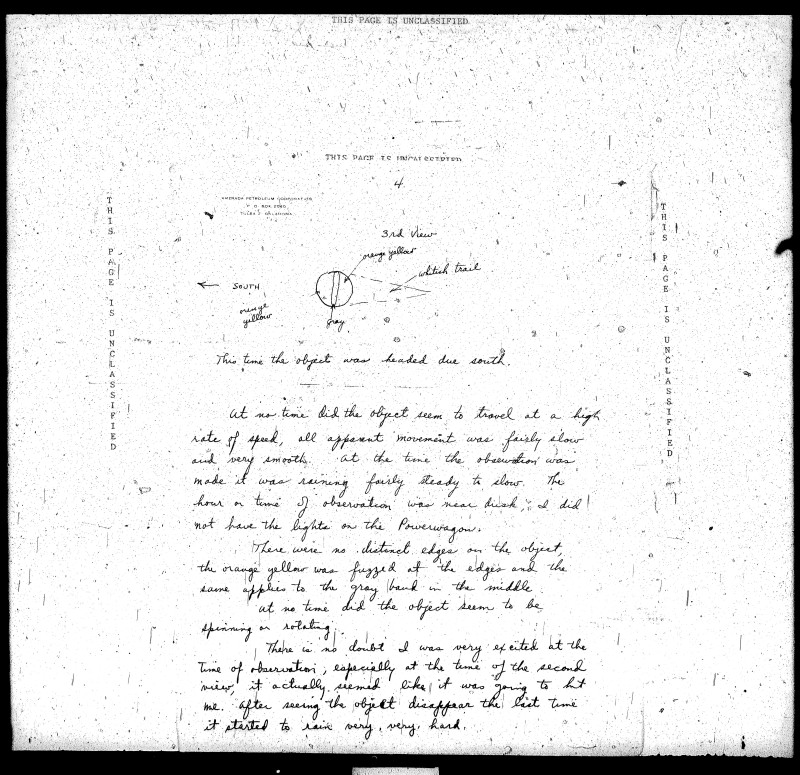 THIS PAGE IS UNCLASSIFIED
THIS PAGE IS UNCLASSIFIED
4
AMERADA PETROLEUM CORPORATION
P. O. BOX 2040
TULSA 2, OKLAHOMA
3rd View
orange yellow
whitish trail
SOUTH
orange
yellow
gray
This time the object was headed due south.
At no time did the object seem to travel at a high
rate of speed, all apparent movement was fairly slow
and very smooth. At the time the observation was
made it was raining fairly steady to slow. The
hour or time of observation was near dusk, I did
not have the lights on the Powerwagon.
There were no distinct edges on the object,
the orange yellow was fuzzed at the edges and the
same applies to the gray band in the middle
at no time did the object seem to be
spinning or rotating.
There is no doubt I was very excited at the
time of observation, especially at the time of the second
view, it actually seemed like it was going to hit
me. After seeing the object disappear the last time
it started to rain very, very, hard.
THIS PAGE IS UNCLASSIFIED
THIS PAGE IS UNCLASSIFIED